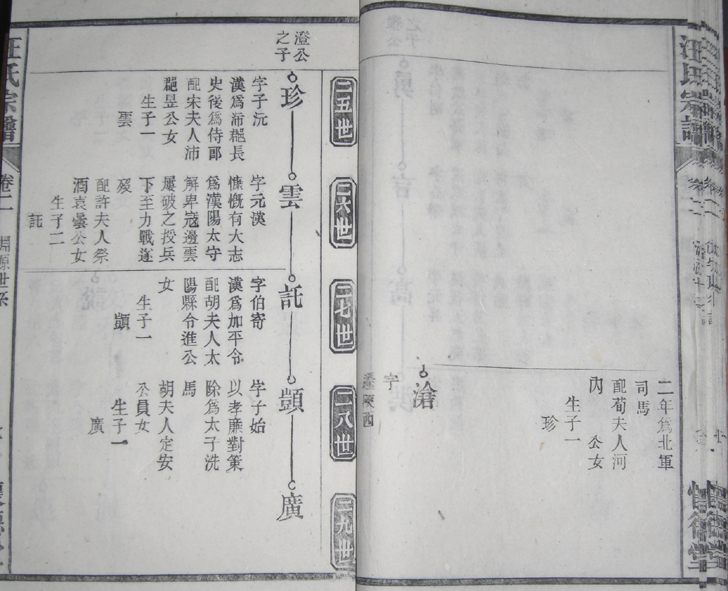 汪氏宗譜
卷二
滄
字
二年為北軍
司馬
配荀夫人河
內　公女
生子一
珍
二五世
二六世
二七世
二八世
二九世
澄公
之子
珍
字子沅
漢為沛郡長
史後為侍郎
配宋夫人沛
郡昱公女
生子一
雲
雲
字元漢
慷慨有大志
為漢陽太守
解卑寇邊雲
屢破之授兵
下至力戰遂
歿
配許夫人祭
酒袁曇公女
生子二
託
託
字伯寄
漢為加平令
配胡夫人太
陽縣令進公
女
生子一
顗
顗
字子始
以孝廉對策
除為太子洗
馬
胡夫人定安
公員女
生子一
廣
廣
汪氏宗譜
卷二
淵源世系